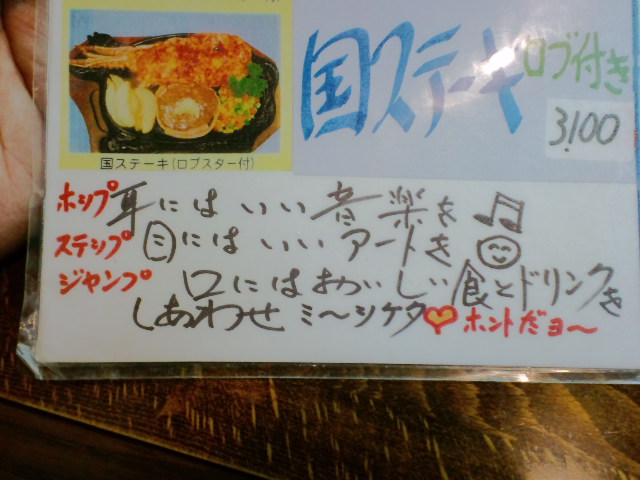 国ステーキ(ロブスター付)
国ステーキ ロブ付き
3,100
ホップ 耳にはいい音楽を
ステップ 目にはいいアートを
ジャンプ 口にはおいしい食とドリンクを
しあわせミ〜ツケタ ホントだヨ〜